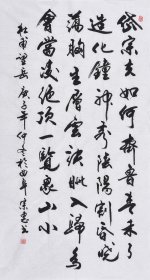 岱宗夫如何齊魯青未了
造化鍾神秀陰陽割昏曉
蕩胸生層雲決眥入歸鳥
會當凌絕頂一覽眾山小
杜甫望岳 庚子年仲冬於曲阜